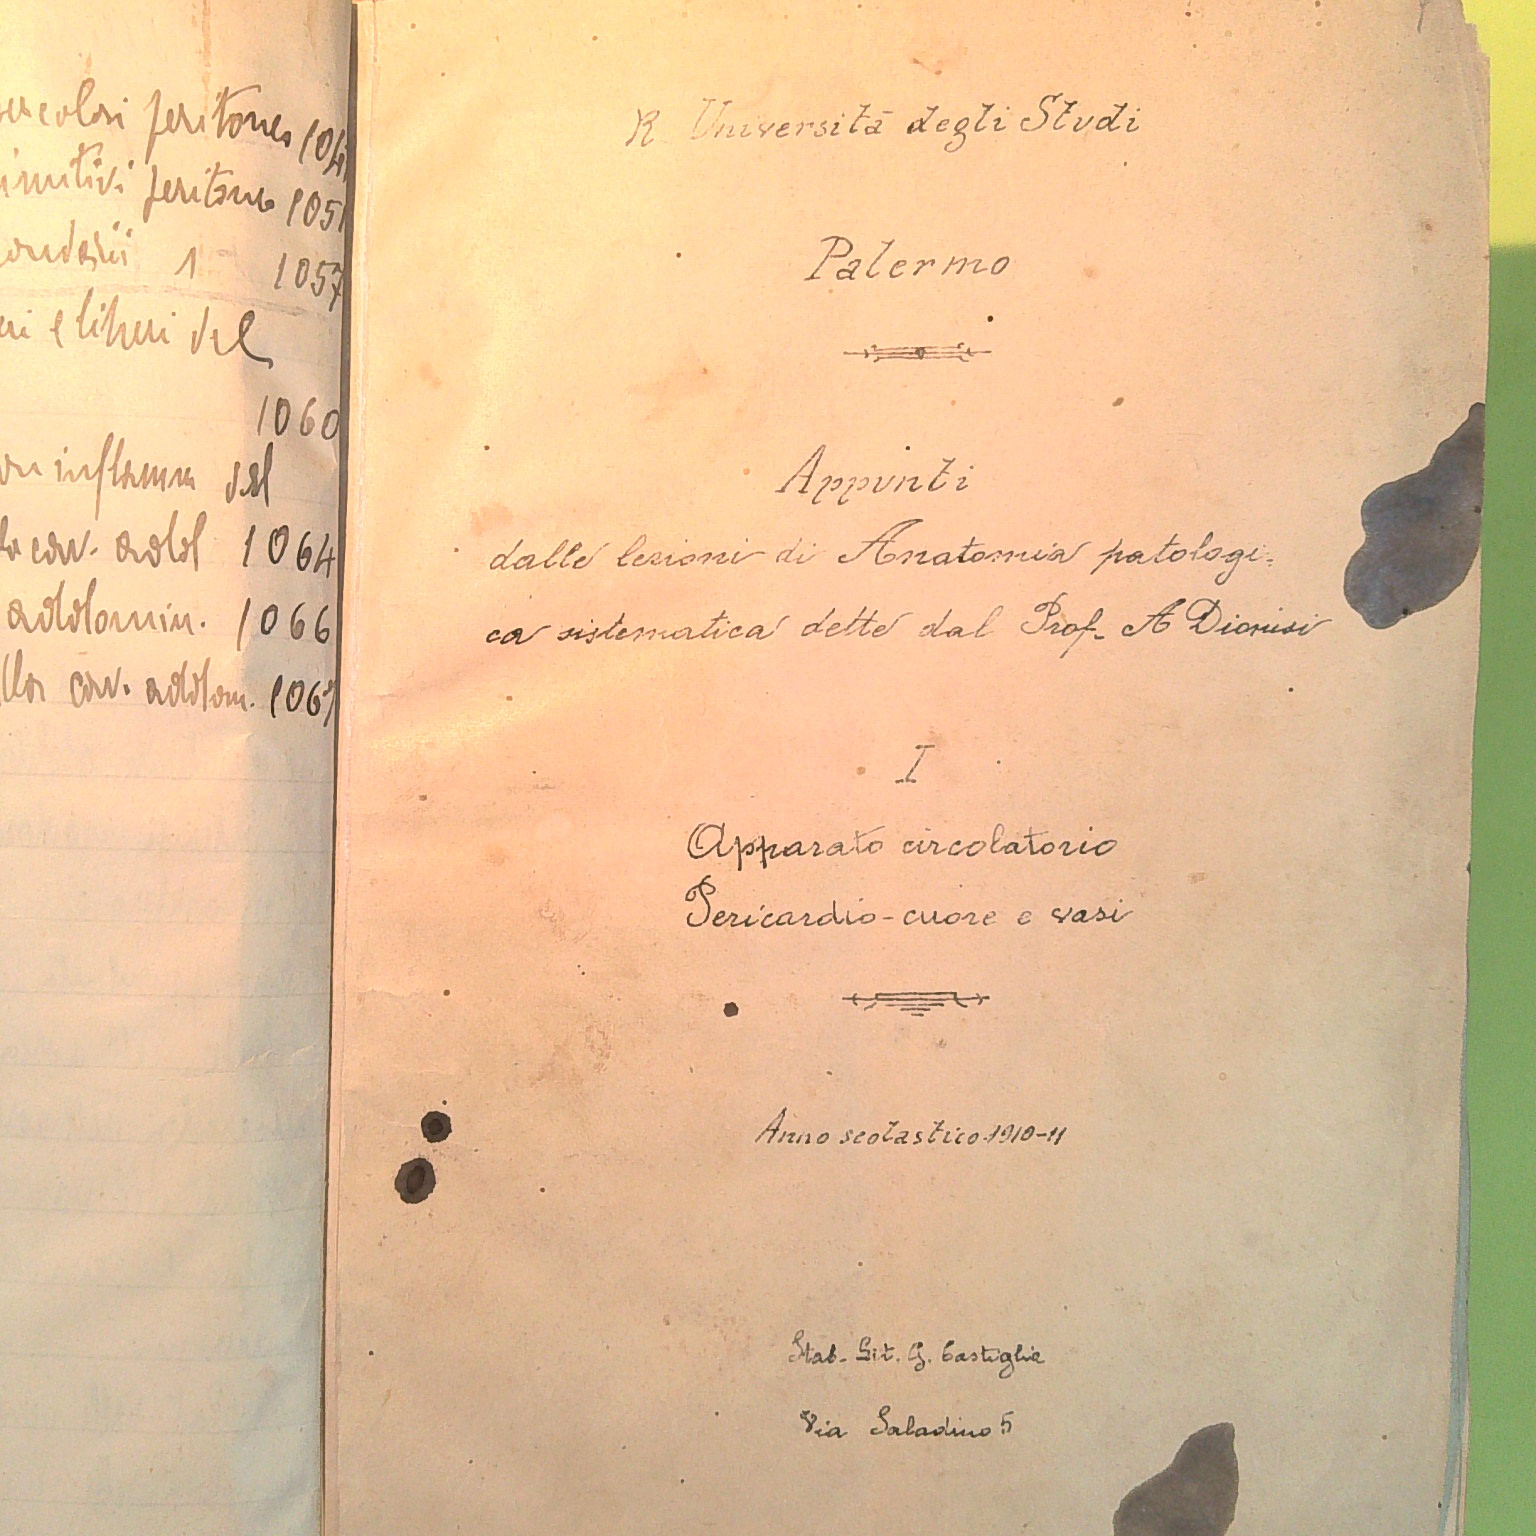 peritoneo 104
peritoneo 1051
1 1057
e liberi del
1060
inflamm del
cav. addl 1064
addomin. 1066
cav. addom. 1067
R Università degli Studi
Palermo
Appunti
dalle lezioni di Anatomia patologi-
ca sistematica dette dal Prof. A Dionisi
I
Apparato circolatorio
Pericardio-cuore e vasi
Anno scolastico 1910-11
Stab. Lit. G. Castiglia
Via Saladino 5